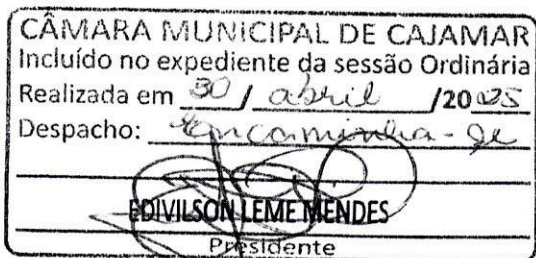 CÂMARA MUNICIPAL DE CAJAMAR
Incluído no expediente da sessão Ordinária
Realizada em 30 / abril /2025
Despacho: Encaminha-se
EDIVILSON LEME MENDES
Presidente